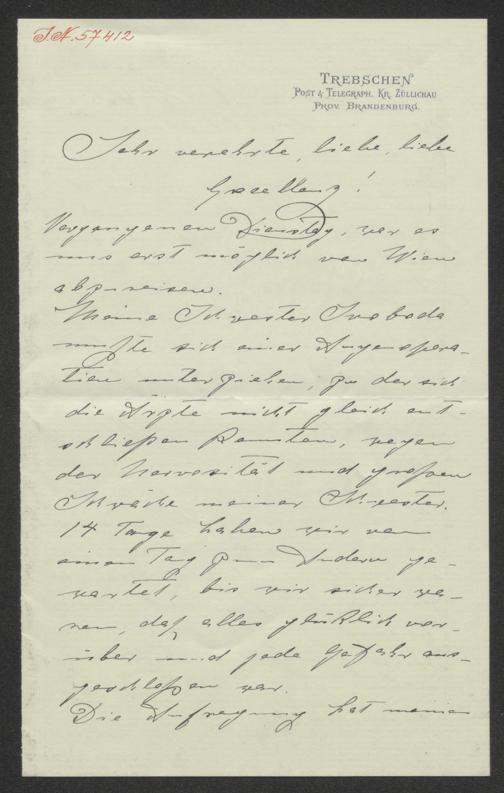 J.N. 57412
TREBSCHEN
POST & TELEGRAPH. KR. ZÜLLICHAU
PROV. BRANDENBURG.
Sehr verehrte, liebe, liebe
Excellenz!
Vergangenen Dienstag, war es
uns erst möglich von Wien
abzureisen.
Meine Schwester Svoboda
mußte sich einer Augenopera-
tion unterziehen, zu der sich
die Ärzte nicht gleich ent-
schließen konnten, wegen
der Nervosität und großen
Schwäche meiner Schwester.
14 Tage haben wir von
einem Tag zum Andern ge-
wartet, bis wir sicher wa-
ren, daß alles glücklich vor-
über und jede Gefahr aus-
geschloßen war.
Die Aufregung hat meinen